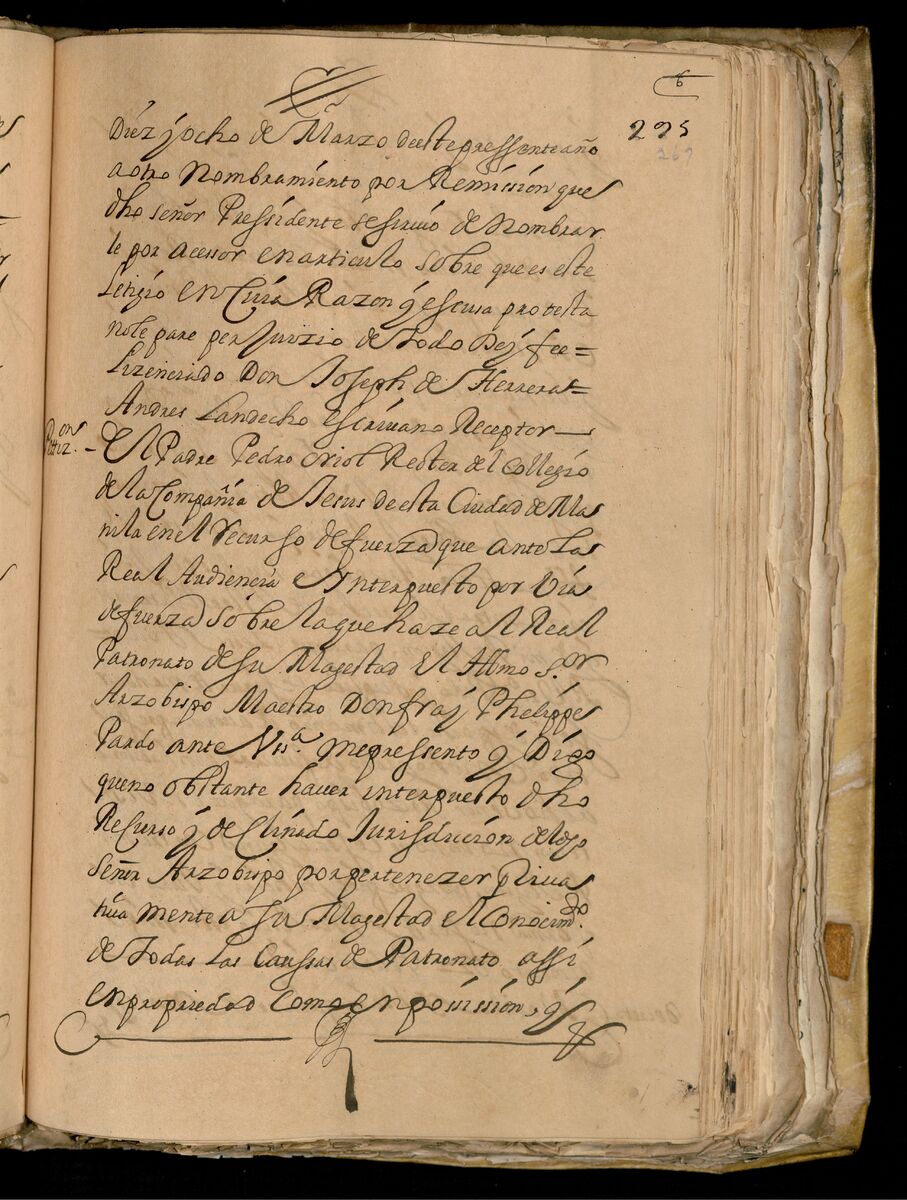 6
295
269
Diez y ocho de Marzo deeste pressente año
a otro Nombramiento por Remission que
dho señor Pressidente se siruió de Nombrar
le por Acessor en articulo sobre que es este
Litigio en Cuia Razon y escusa protesta
nole pare perjuizio de todo Doy fee=
Lizenciado Don Joseph de Herrera=
Andres Landecho escriuano Receptor—
Petiz.on
- El Padre Pedro Oriol Rector del Collegio
de la Compañia de Jesus de esta Ciudad de Ma
nila en el Recurso de fuerza que ante la
Real Audiencia e Interpuesto por Via
de fuerza sobre la que haze al Real
Patronato de su Magestad El Illmo s.or
Arzobispo Maestro Don fray Phelippe
Pardo ante V.s.a me pressento y Digo
que no obstante hauer interpuesto dho
Recurso y declinado Jurisdicion deldho
señor Arzobispo por pertenezer priua
tiua mente a su Magestad el Conocim.to
de todas las Caussas de Patronato assi
en propriedad como en possission, y